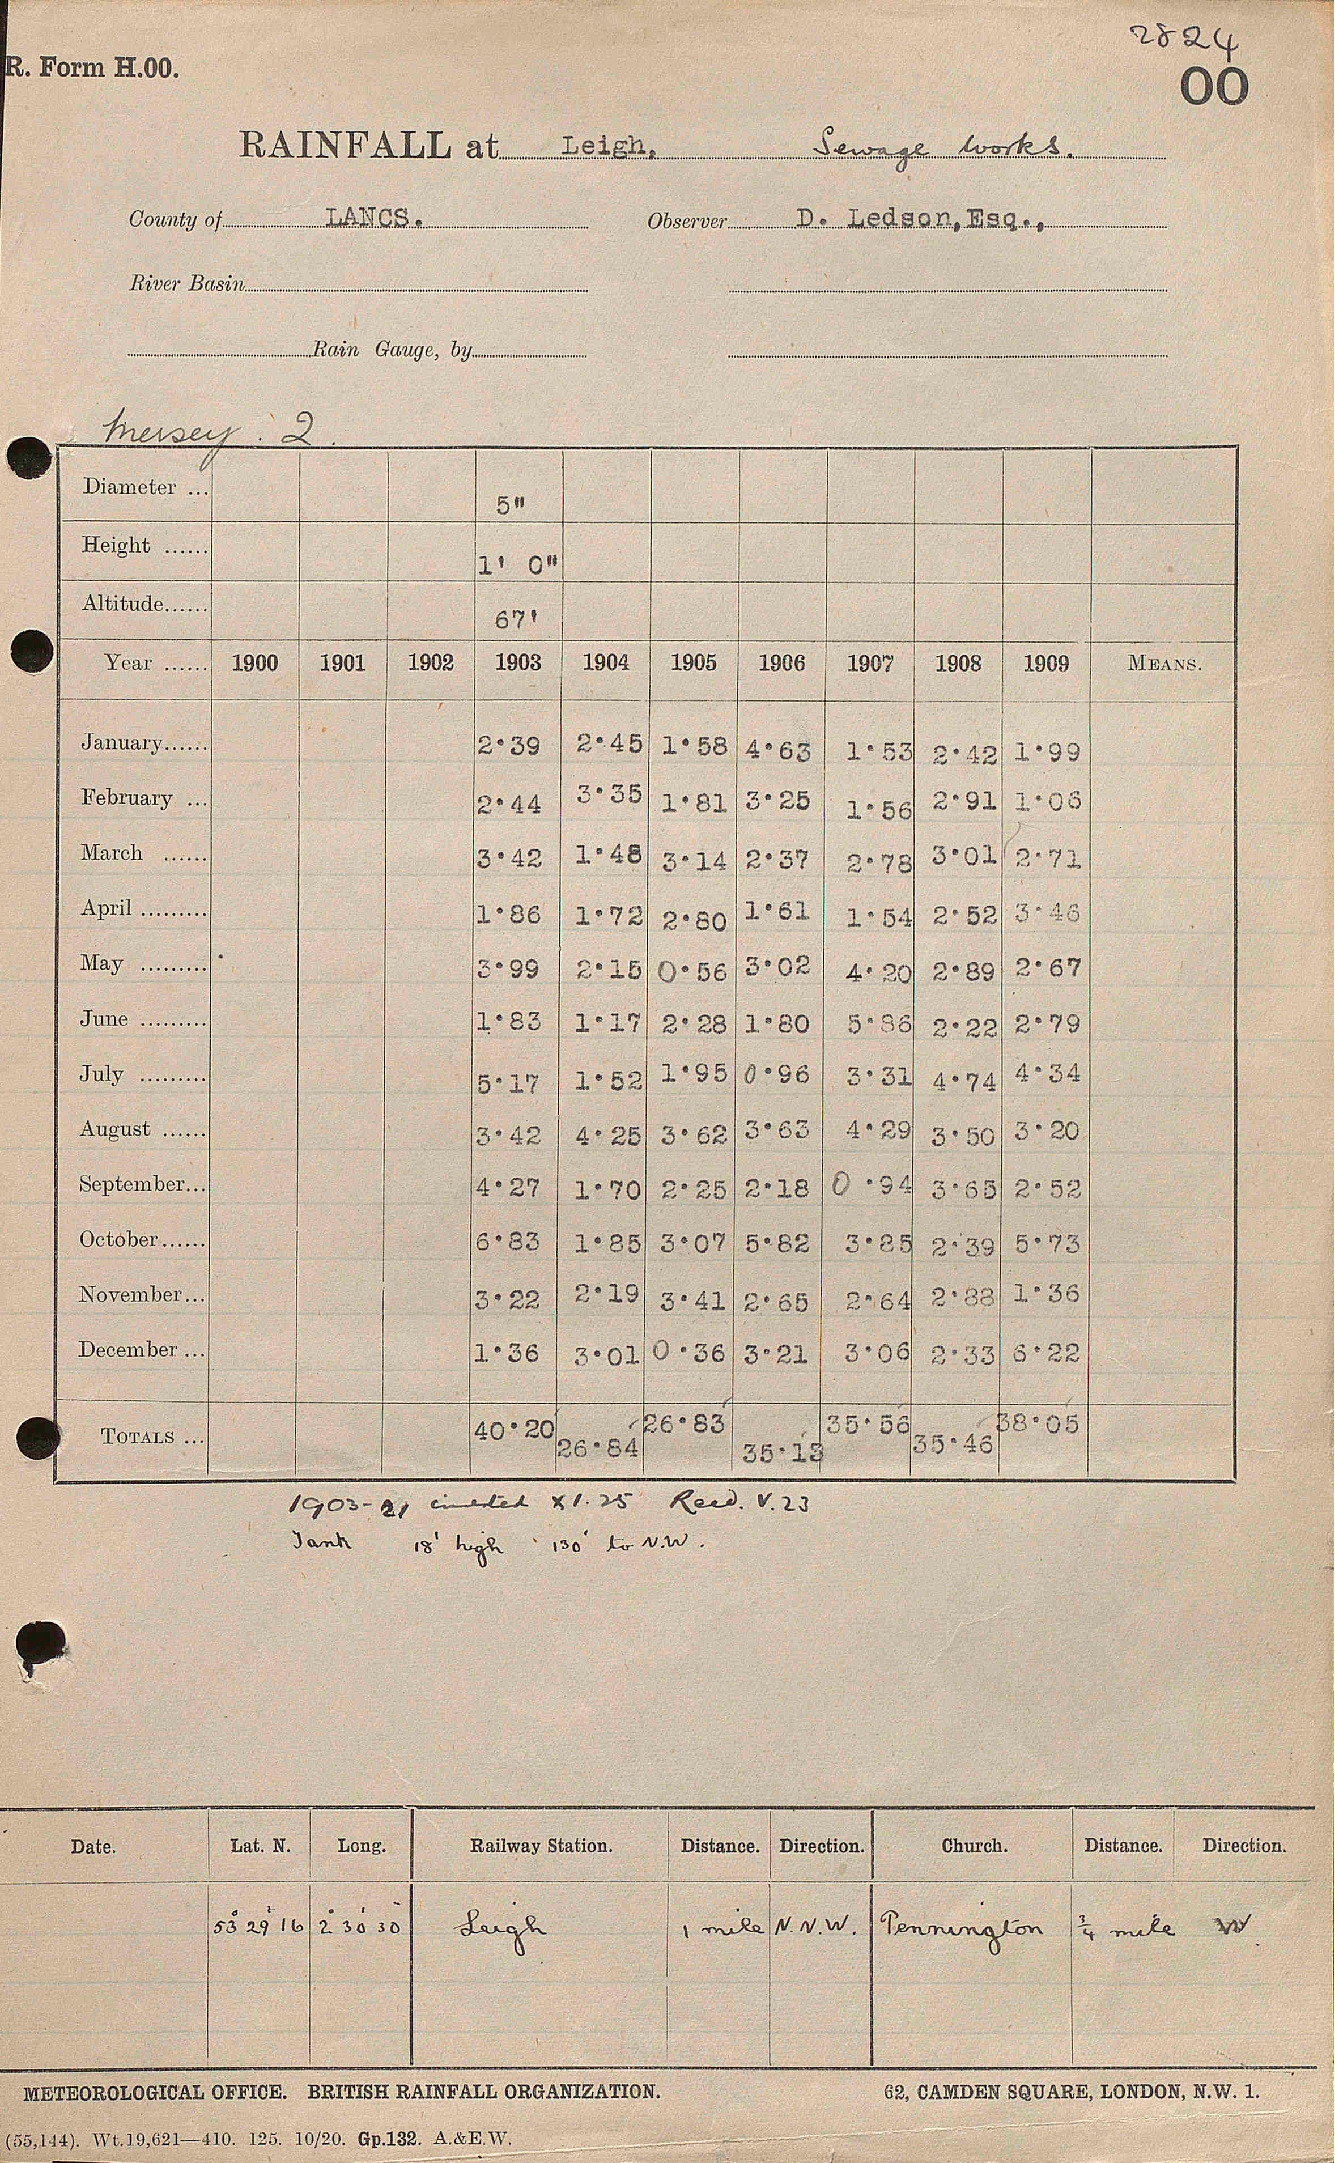 2824
R. Form H.00.
00
RAINFALL at Leigh, Sewage Works.
County of LANCS. Observer D. Ledson, Esq.,
River Basin
Rain Gauge, by
Mersey. 2.
Diameter ... 5"
Height ...... 1' 0"
Altitude...... 67'
Year ...... 1900 1901 1902 1903 1904 1905 1906 1907 1908 1909 MEANS.
January...... 2·39 2·45 1·58 4·63 1·53 2·42 1·99
February ... 2·44 3·35 1·81 3·25 1·56 2·91 1·06
March ...... 3·42 1·48 3·14 2·37 2·78 3·01 2·71
April ......... 1·86 1·72 2·80 1·61 1·54 2·52 3·46
May ......... 3·99 2·15 0·56 3·02 4·20 2·89 2·67
June ......... 1·83 1·17 2·28 1·80 5·86 2·22 2·79
July ......... 5·17 1·52 1·95 0·96 3·31 4·74 4·34
August ...... 3·42 4·25 3·62 3·63 4·29 3·50 3·20
September... 4·27 1·70 2·25 2·18 0·94 3·65 2·52
October...... 6·83 1·85 3·07 5·82 3·85 2·39 5·73
November... 3·22 2·19 3·41 2·65 2·64 2·88 1·36
December ... 1·36 3·01 0·36 3·21 3·06 2·33 6·22
TOTALS ... 40·20 26·84 26·83 35·13 35·56 35·46 38·05
1903-21 X1.25 Recd. V.23
Tank 18' high 130' to N.W.
Date. Lat. N. Long. Railway Station. Distance. Direction. Church. Distance. Direction.
53° 29' 16 2° 30' 30" Leigh 1 mile N.N.W. Pennington ¾ mile W
METEOROLOGICAL OFFICE. BRITISH RAINFALL ORGANIZATION. 62, CAMDEN SQUARE, LONDON, N.W. 1.
(55,144). Wt.19,621—410. 125. 10/20. Gp.132. A.&E.W.